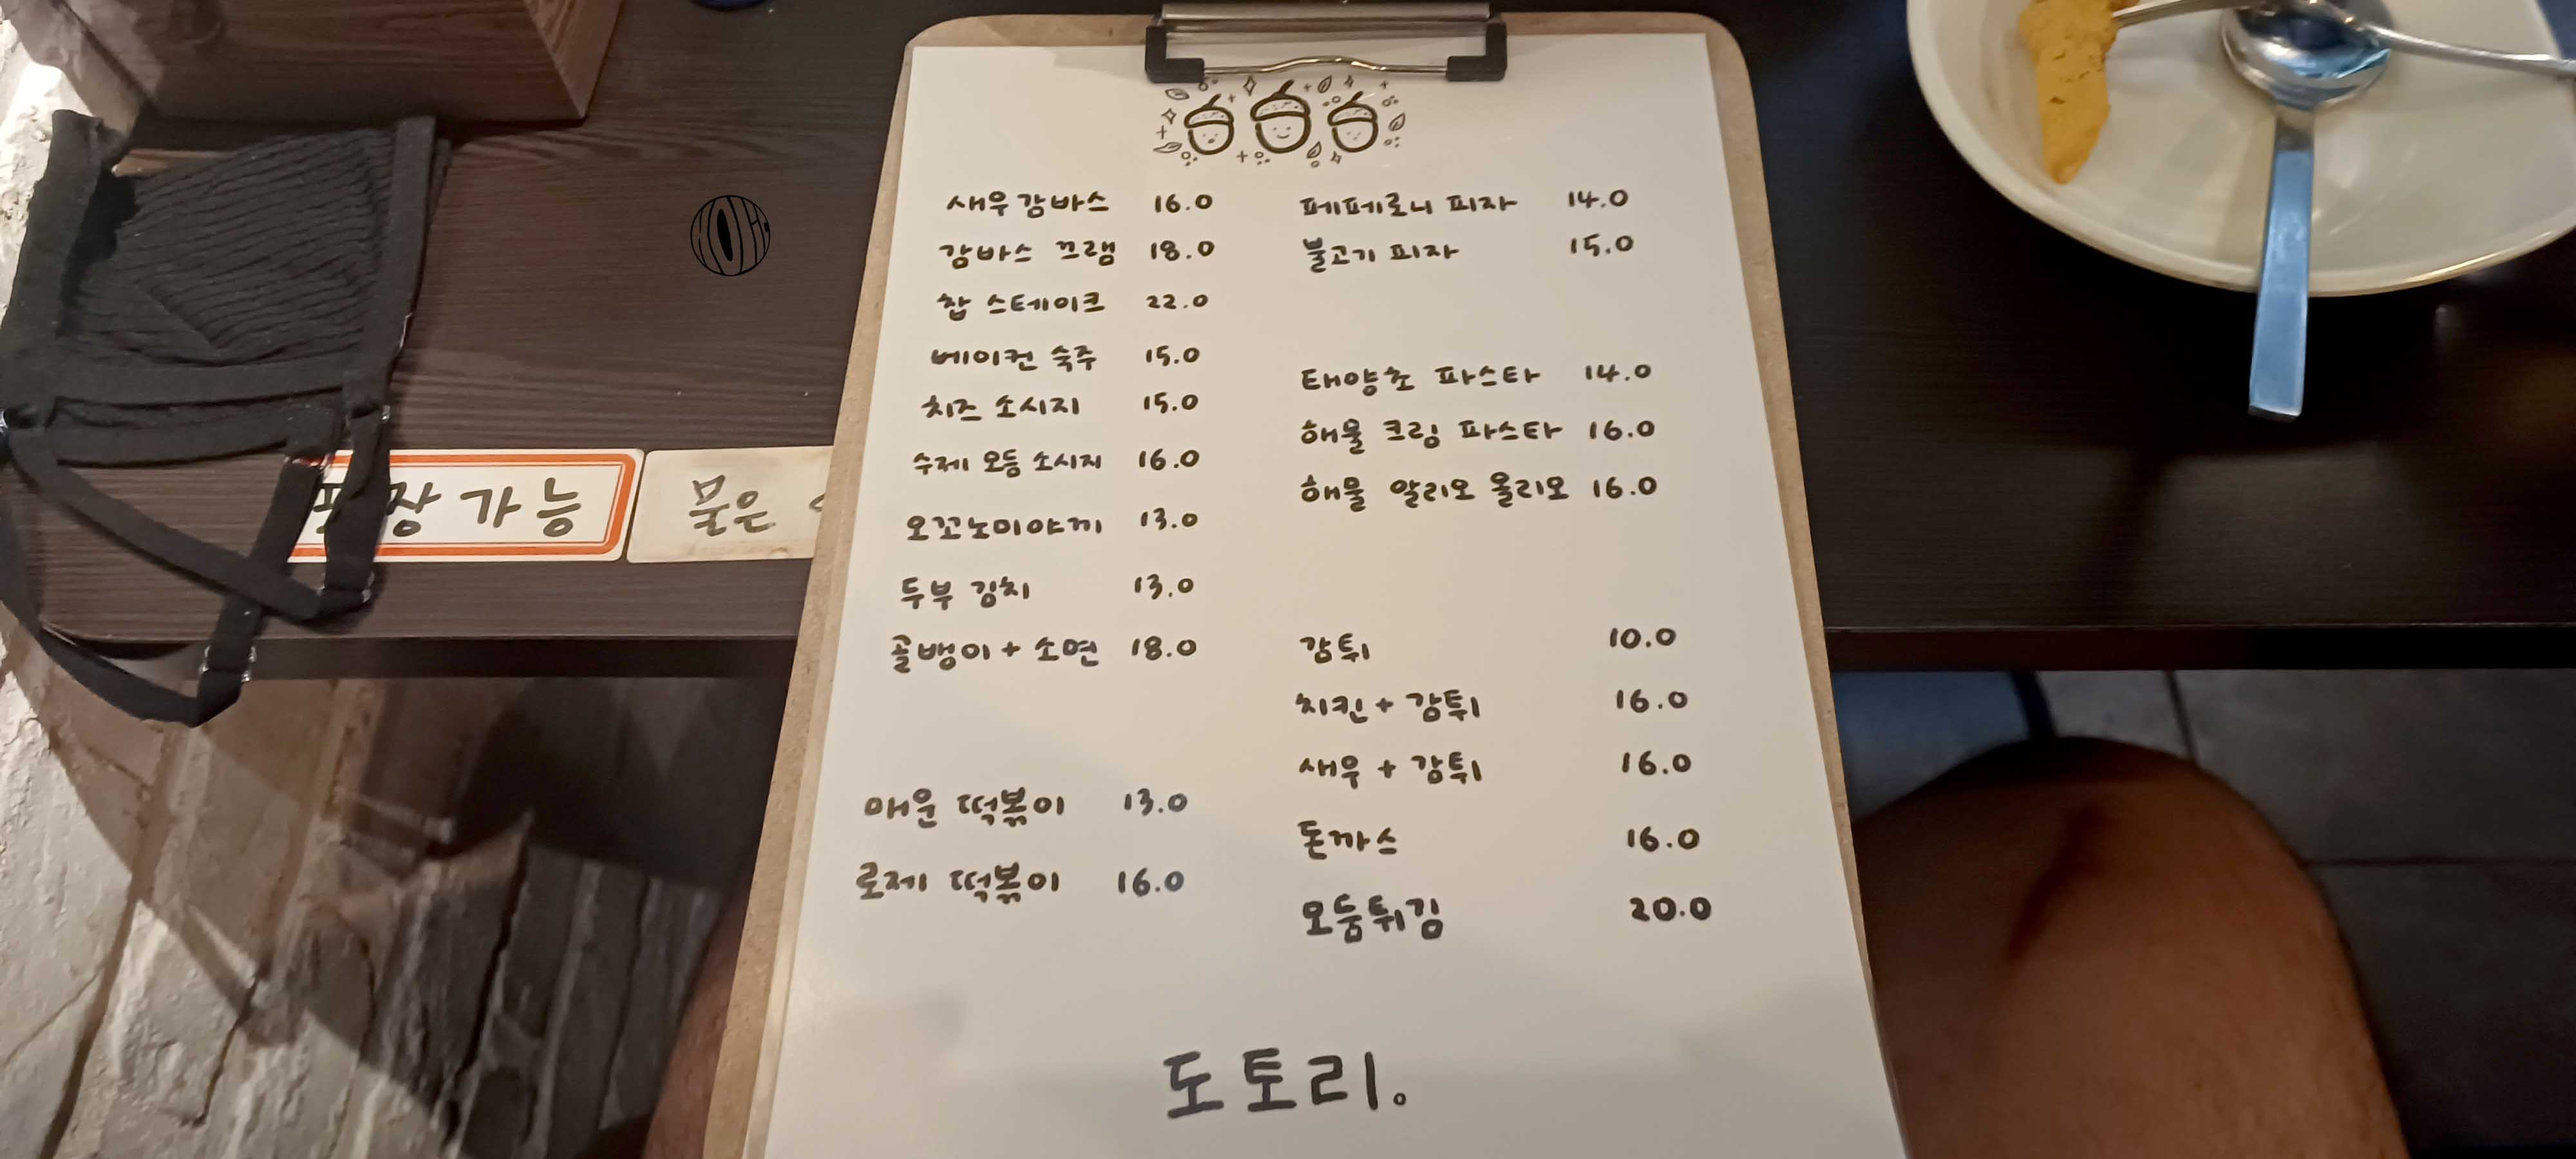 새우감바스 16.0
감바스 끄램 18.0
찹 스테이크 22.0
베이컨 숙주 15.0
치즈 소시지 15.0
수제 모듬 소시지 16.0
오꼬노미야끼 13.0
두부 김치 13.0
골뱅이 + 소면 18.0
매운 떡볶이 13.0
로제 떡볶이 16.0
페페로니 피자 14.0
불고기 피자 15.0
태양초 파스타 14.0
해물 크림 파스타 16.0
해물 알리오 올리오 16.0
감튀 10.0
치킨 + 감튀 16.0
새우 + 감튀 16.0
돈까스 16.0
모둠튀김 20.0
도토리.
포장 가능
물은